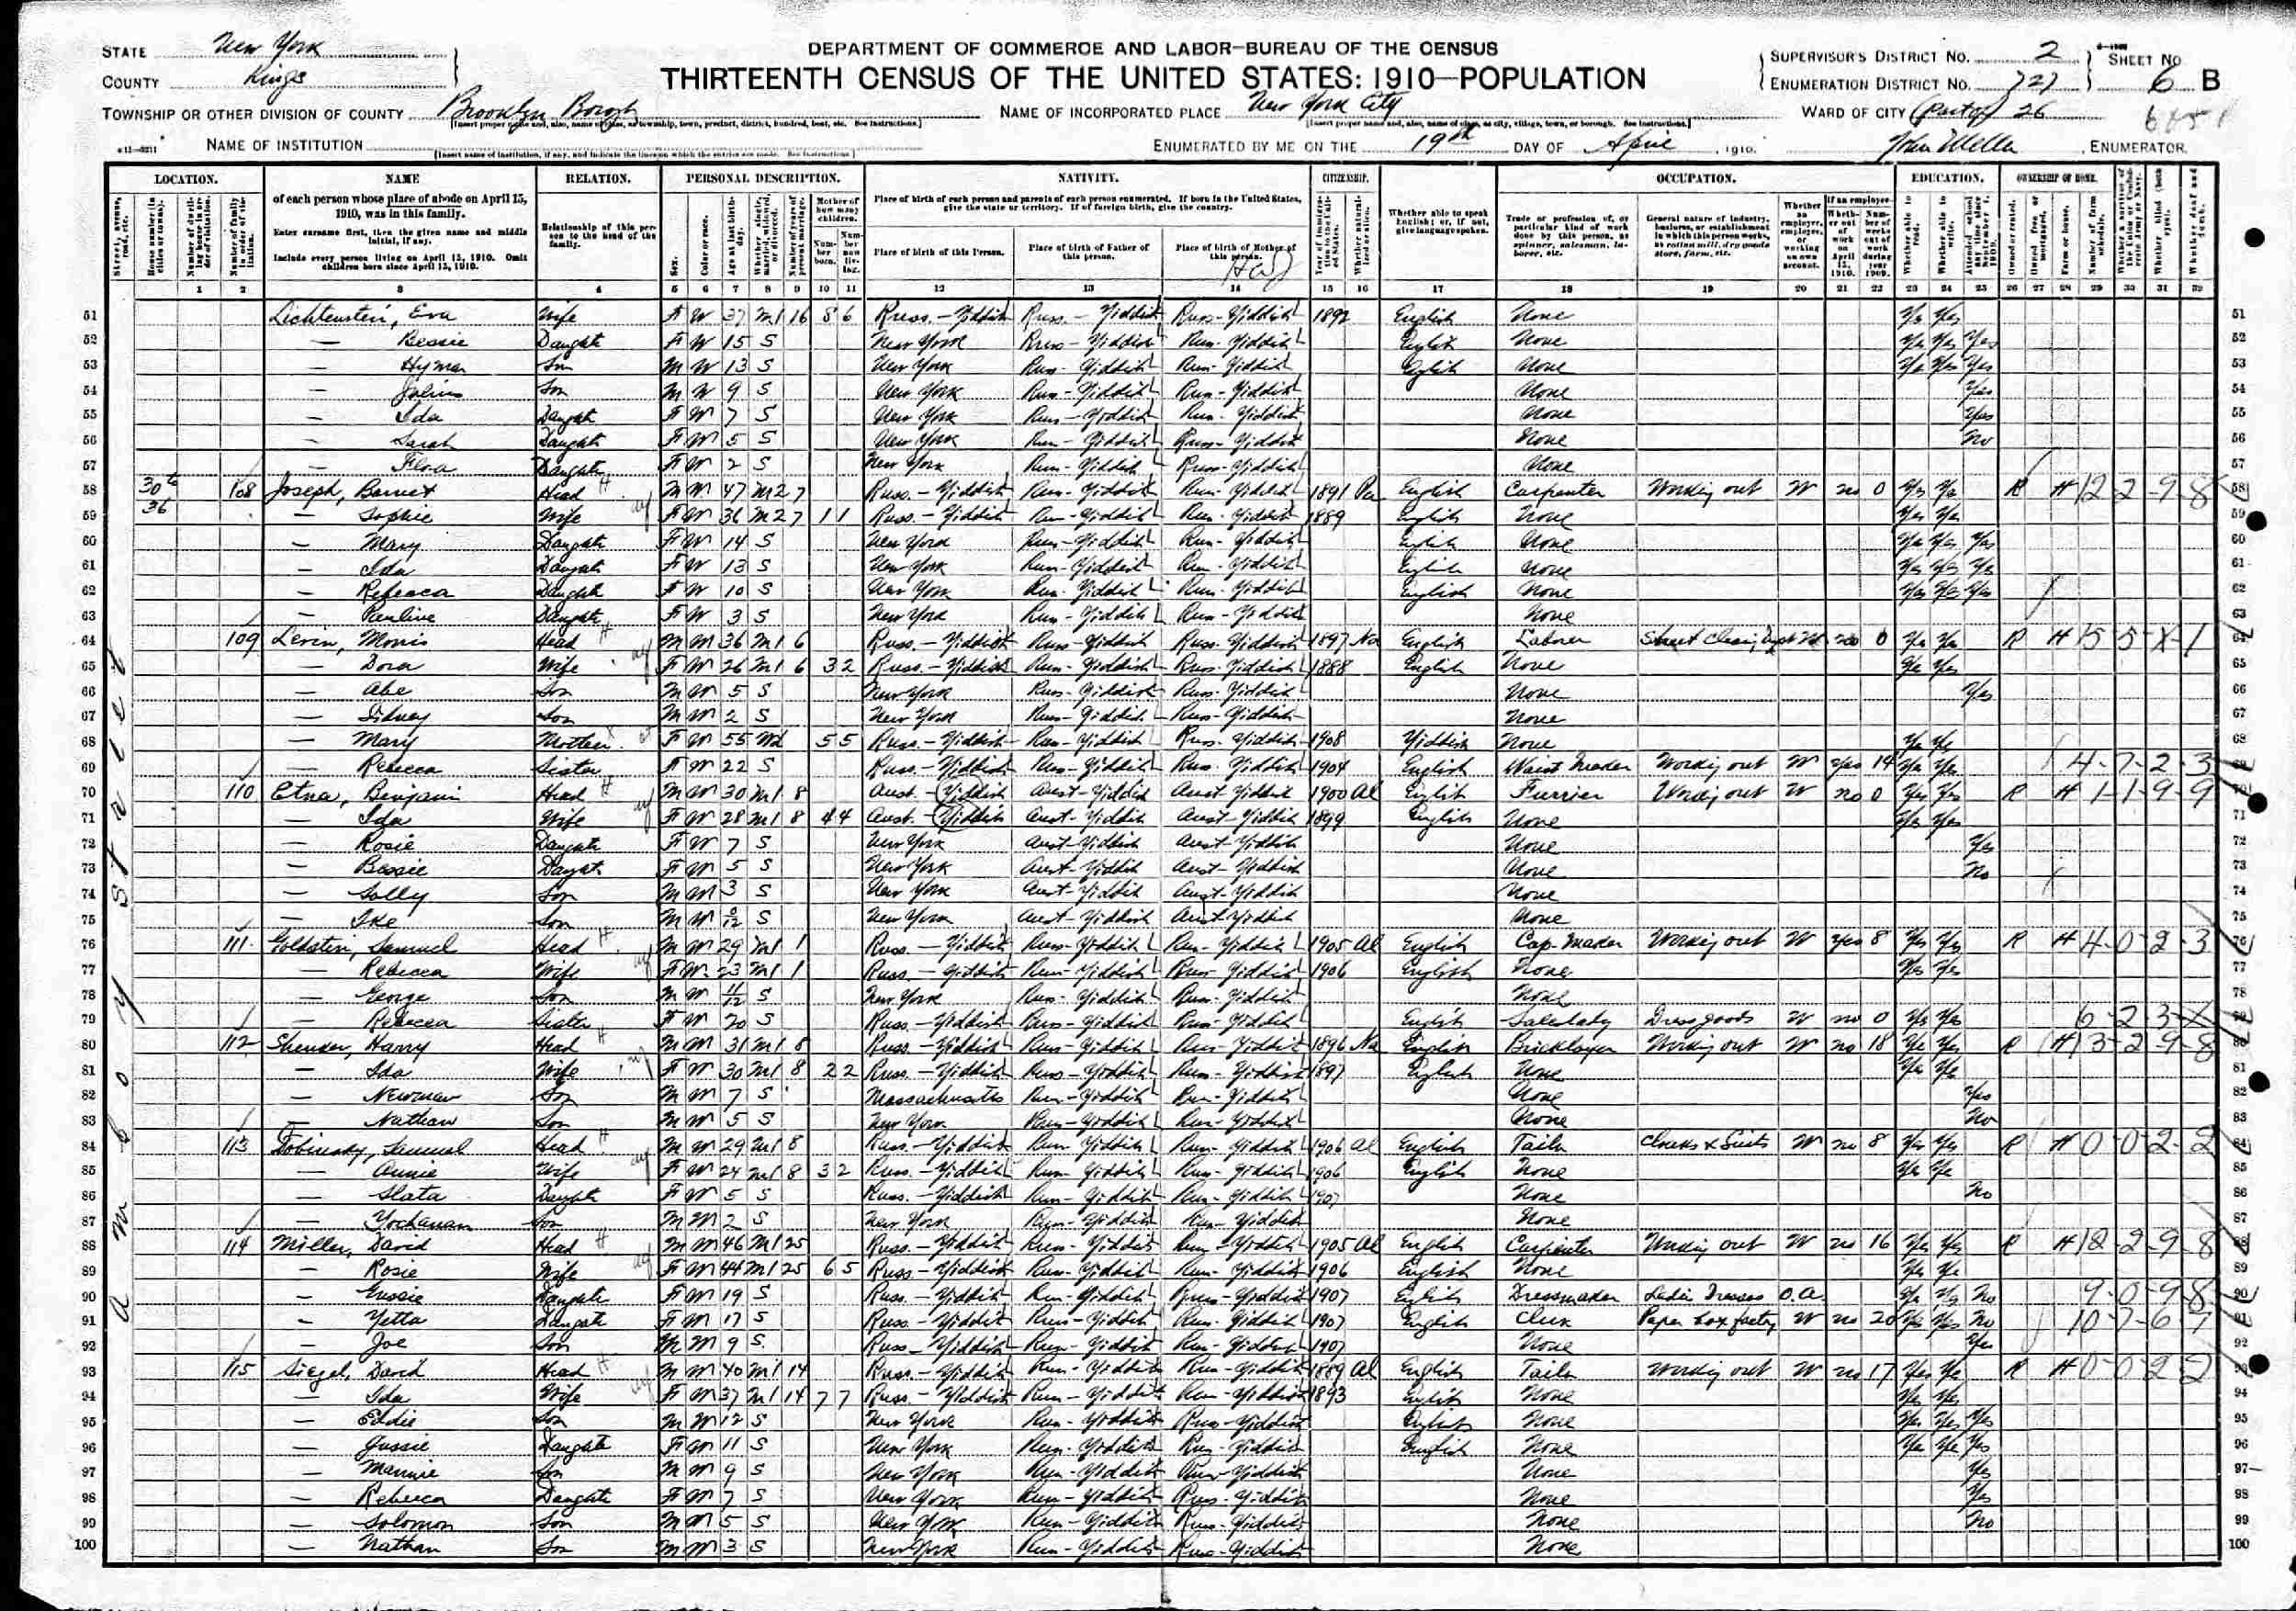 STATE New York
COUNTY Kings
TOWNSHIP OR OTHER DIVISION OF COUNTY Brooklyn Boro
NAME OF INSTITUTION
DEPARTMENT OF COMMERCE AND LABOR—BUREAU OF THE CENSUS
THIRTEENTH CENSUS OF THE UNITED STATES: 1910—POPULATION
NAME OF INCORPORATED PLACE New York City
ENUMERATED BY ME ON THE 19th DAY OF April, 1910.
SUPERVISOR'S DISTRICT NO. 2
ENUMERATION DISTRICT NO. 727
SHEET NO. 6 B
WARD OF CITY (part of) 26
ENUMERATOR.
LOCATION. NAME RELATION. PERSONAL DESCRIPTION. NATIVITY. CITIZENSHIP. OCCUPATION. EDUCATION. OWNERSHIP OF HOME.
of each person whose place of abode on April 15, 1910, was in this family.
Enter surname first, then the given name and middle initial, if any.
Include every person living on April 15, 1910. Omit children born since April 15, 1910.
Relationship of this person to the head of the family.
Place of birth of each person and parents of each person enumerated. If born in the United States, give the state or territory. If of foreign birth, give the country.
Place of birth of this Person. Place of birth of Father of this person. Place of birth of Mother of this person.
Whether able to speak English; or, if not, give language spoken.
51 Lichtenstein, Eva Wife F W 37 M1 16 8 6 Russ.-Yiddish Russ.-Yiddish Russ-Yiddish 1892 English None Yes Yes
52 — Bessie Daught F W 15 S New York Russ-Yiddish Russ-Yiddish English None Yes Yes Yes
53 — Hyman Son M W 13 S New York Russ-Yiddish Russ-Yiddish English None Yes Yes Yes
54 — Julius Son M W 9 S New York Russ-Yiddish Russ-Yiddish None Yes
55 — Ida Daught F W 7 S New York Russ-Yiddish Russ-Yiddish None Yes
56 — Sarah Daught F W 5 S New York Russ-Yiddish Russ-Yiddish None No
57 — Flora Daught F W 2 S New York Russ-Yiddish Russ-Yiddish None
58 108 Joseph, Barnet Head M W 47 M2 7 Russ.-Yiddish Russ-Yiddish Russ-Yiddish 1891 Pa English Carpenter Working out W no 0 Yes Yes R H 12-2-9-8
59 36 — Sophie Wife F W 36 M2 7 1 1 Russ.-Yiddish Russ-Yiddish Russ-Yiddish 1889 English None Yes Yes
60 — Mary Daught F W 14 S New York Russ-Yiddish Russ-Yiddish English None Yes Yes Yes
61 — Ida Daught F W 13 S New York Russ-Yiddish Russ-Yiddish English None Yes Yes Yes
62 — Rebecca Daught F W 10 S New York Russ-Yiddish Russ-Yiddish English None Yes Yes Yes
63 — Pauline Daught F W 3 S New York Russ-Yiddish Russ-Yiddish None
64 109 Levin, Morris Head M W 36 M1 6 Russ.-Yiddish Russ-Yiddish Russ-Yiddish 1897 Na English Laborer Street Clean no 0 Yes Yes R H 15-5-X-1
65 — Dora Wife F W 26 M1 6 3 2 Russ.-Yiddish Russ-Yiddish Russ-Yiddish 1888 English None Yes Yes
66 — Abe Son M W 5 S New York Russ-Yiddish Russ-Yiddish None Yes
67 — Sidney Son M W 2 S New York Russ-Yiddish Russ-Yiddish None
68 — Mary Mother F W 55 Wd 5 5 Russ.-Yiddish Russ-Yiddish Russ-Yiddish 1908 Yiddish None Yes Yes
69 — Rebecca Sister F W 22 S Russ.-Yiddish Russ-Yiddish Russ-Yiddish 1904 English Waist Maker Working out W Yes 14 Yes Yes 4-7-2-3
70 110 Etna, Benjamin Head M W 30 M1 8 Aust.-Yiddish Aust-Yiddish Aust Yiddish 1900 Al English Furrier Working out W no 0 Yes Yes R H 1-1-9-9
71 — Ida Wife F W 28 M1 8 4 4 Aust.-Yiddish Aust-Yiddish Aust-Yiddish 1899 English None Yes Yes
72 — Rosie Daught F W 7 S New York Aust-Yiddish Aust-Yiddish None Yes
73 — Bessie Daught F W 5 S New York Aust-Yiddish Aust-Yiddish None No
74 — Solly Son M W 3 S New York Aust-Yiddish Aust-Yiddish None
75 — Ike Son M W S New York Aust-Yiddish Aust Yiddish None
76 111 Goldstein, Samuel Head M W 29 M1 1 Russ.-Yiddish Russ-Yiddish Russ-Yiddish 1905 Al English Cap Maker Working out W Yes 8 Yes Yes R H 4-0-2-3
77 — Rebecca Wife F W 23 M1 1 Russ-Yiddish Russ-Yiddish Russ-Yiddish 1906 English None Yes Yes
78 — George Son M W 11/12 S New York Russ-Yiddish Russ-Yiddish None
79 — Rebecca Sister F W 20 S Russ.-Yiddish Russ-Yiddish Russ-Yiddish English Saleslady Dress goods W no 0 Yes Yes 6-2-3-X
80 112 Shenker, Harry Head M W 31 M1 8 Russ.-Yiddish Russ-Yiddish Russ-Yiddish 1896 Na English Bricklayer Working out W no 18 Yes Yes R H 3-2-9-8
81 — Ida Wife F W 30 M1 8 2 2 Russ.-Yiddish Russ-Yiddish Russ-Yiddish 1897 English None Yes Yes
82 — Newman Son M W 7 S Massachusetts Russ-Yiddish Russ-Yiddish None Yes
83 — Nathan Son M W 5 S New York Russ-Yiddish Russ-Yiddish None No
84 113 Dobinsky, Samuel Head M W 29 M1 8 Russ.-Yiddish Russ-Yiddish Russ-Yiddish 1906 Al English Tailor Cloaks & Suits W no 8 Yes Yes R H 0-0-2-2
85 — Annie Wife F W 24 M1 8 3 2 Russ.-Yiddish Russ-Yiddish Russ-Yiddish 1906 English None Yes Yes
86 — Slata Daught F W 5 S Russ.-Yiddish Russ-Yiddish Russ-Yiddish 1907 None No
87 — Yochanan Son M W 2 S New York Russ-Yiddish Russ-Yiddish None
88 114 Miller, David Head M W 46 M1 25 Russ.-Yiddish Russ-Yiddish Russ-Yiddish 1905 Al English Carpenter Working out W no 16 Yes Yes R H 12-2-9-8
89 — Rosie Wife F W 44 M1 25 6 5 Russ.-Yiddish Russ-Yiddish Russ-Yiddish 1906 English None Yes Yes
90 — Gussie Daught F W 19 S Russ.-Yiddish Russ-Yiddish Russ-Yiddish 1907 English Dressmaker Ladies Dresses O.A. Yes Yes No 9-0-9-8
91 — Yetta Daught F W 17 S Russ.-Yiddish Russ-Yiddish Russ-Yiddish 1907 English Clerk Paper box factory W no 20 Yes Yes No 10-7-6-7
92 — Joe Son M W 9 S Russ-Yiddish Russ-Yiddish Russ-Yiddish 1907 None Yes
93 115 Siegel, David Head M W 40 M1 14 Russ.-Yiddish Russ-Yiddish Russ-Yiddish 1889 Al English Tailor Working out W no 17 Yes Yes R H 0-0-2-2
94 — Ida Wife F W 37 M1 14 7 7 Russ-Yiddish Russ-Yiddish Russ-Yiddish 1893 English None Yes Yes
95 — Eddie Son M W 12 S New York Russ-Yiddish Russ-Yiddish English None Yes Yes Yes
96 — Gussie Daught F W 11 S New York Russ-Yiddish Russ-Yiddish English None Yes Yes Yes
97 — Mannie Son M W 9 S New York Russ-Yiddish Russ-Yiddish None Yes
98 — Rebecca Daught F W 7 S New York Russ-Yiddish Russ-Yiddish None Yes
99 — Solomon Son M W 5 S New York Russ-Yiddish Russ-Yiddish None No
100 — Nathan Son M W 3 S New York Russ-Yiddish Russ-Yiddish None
Amboy Street